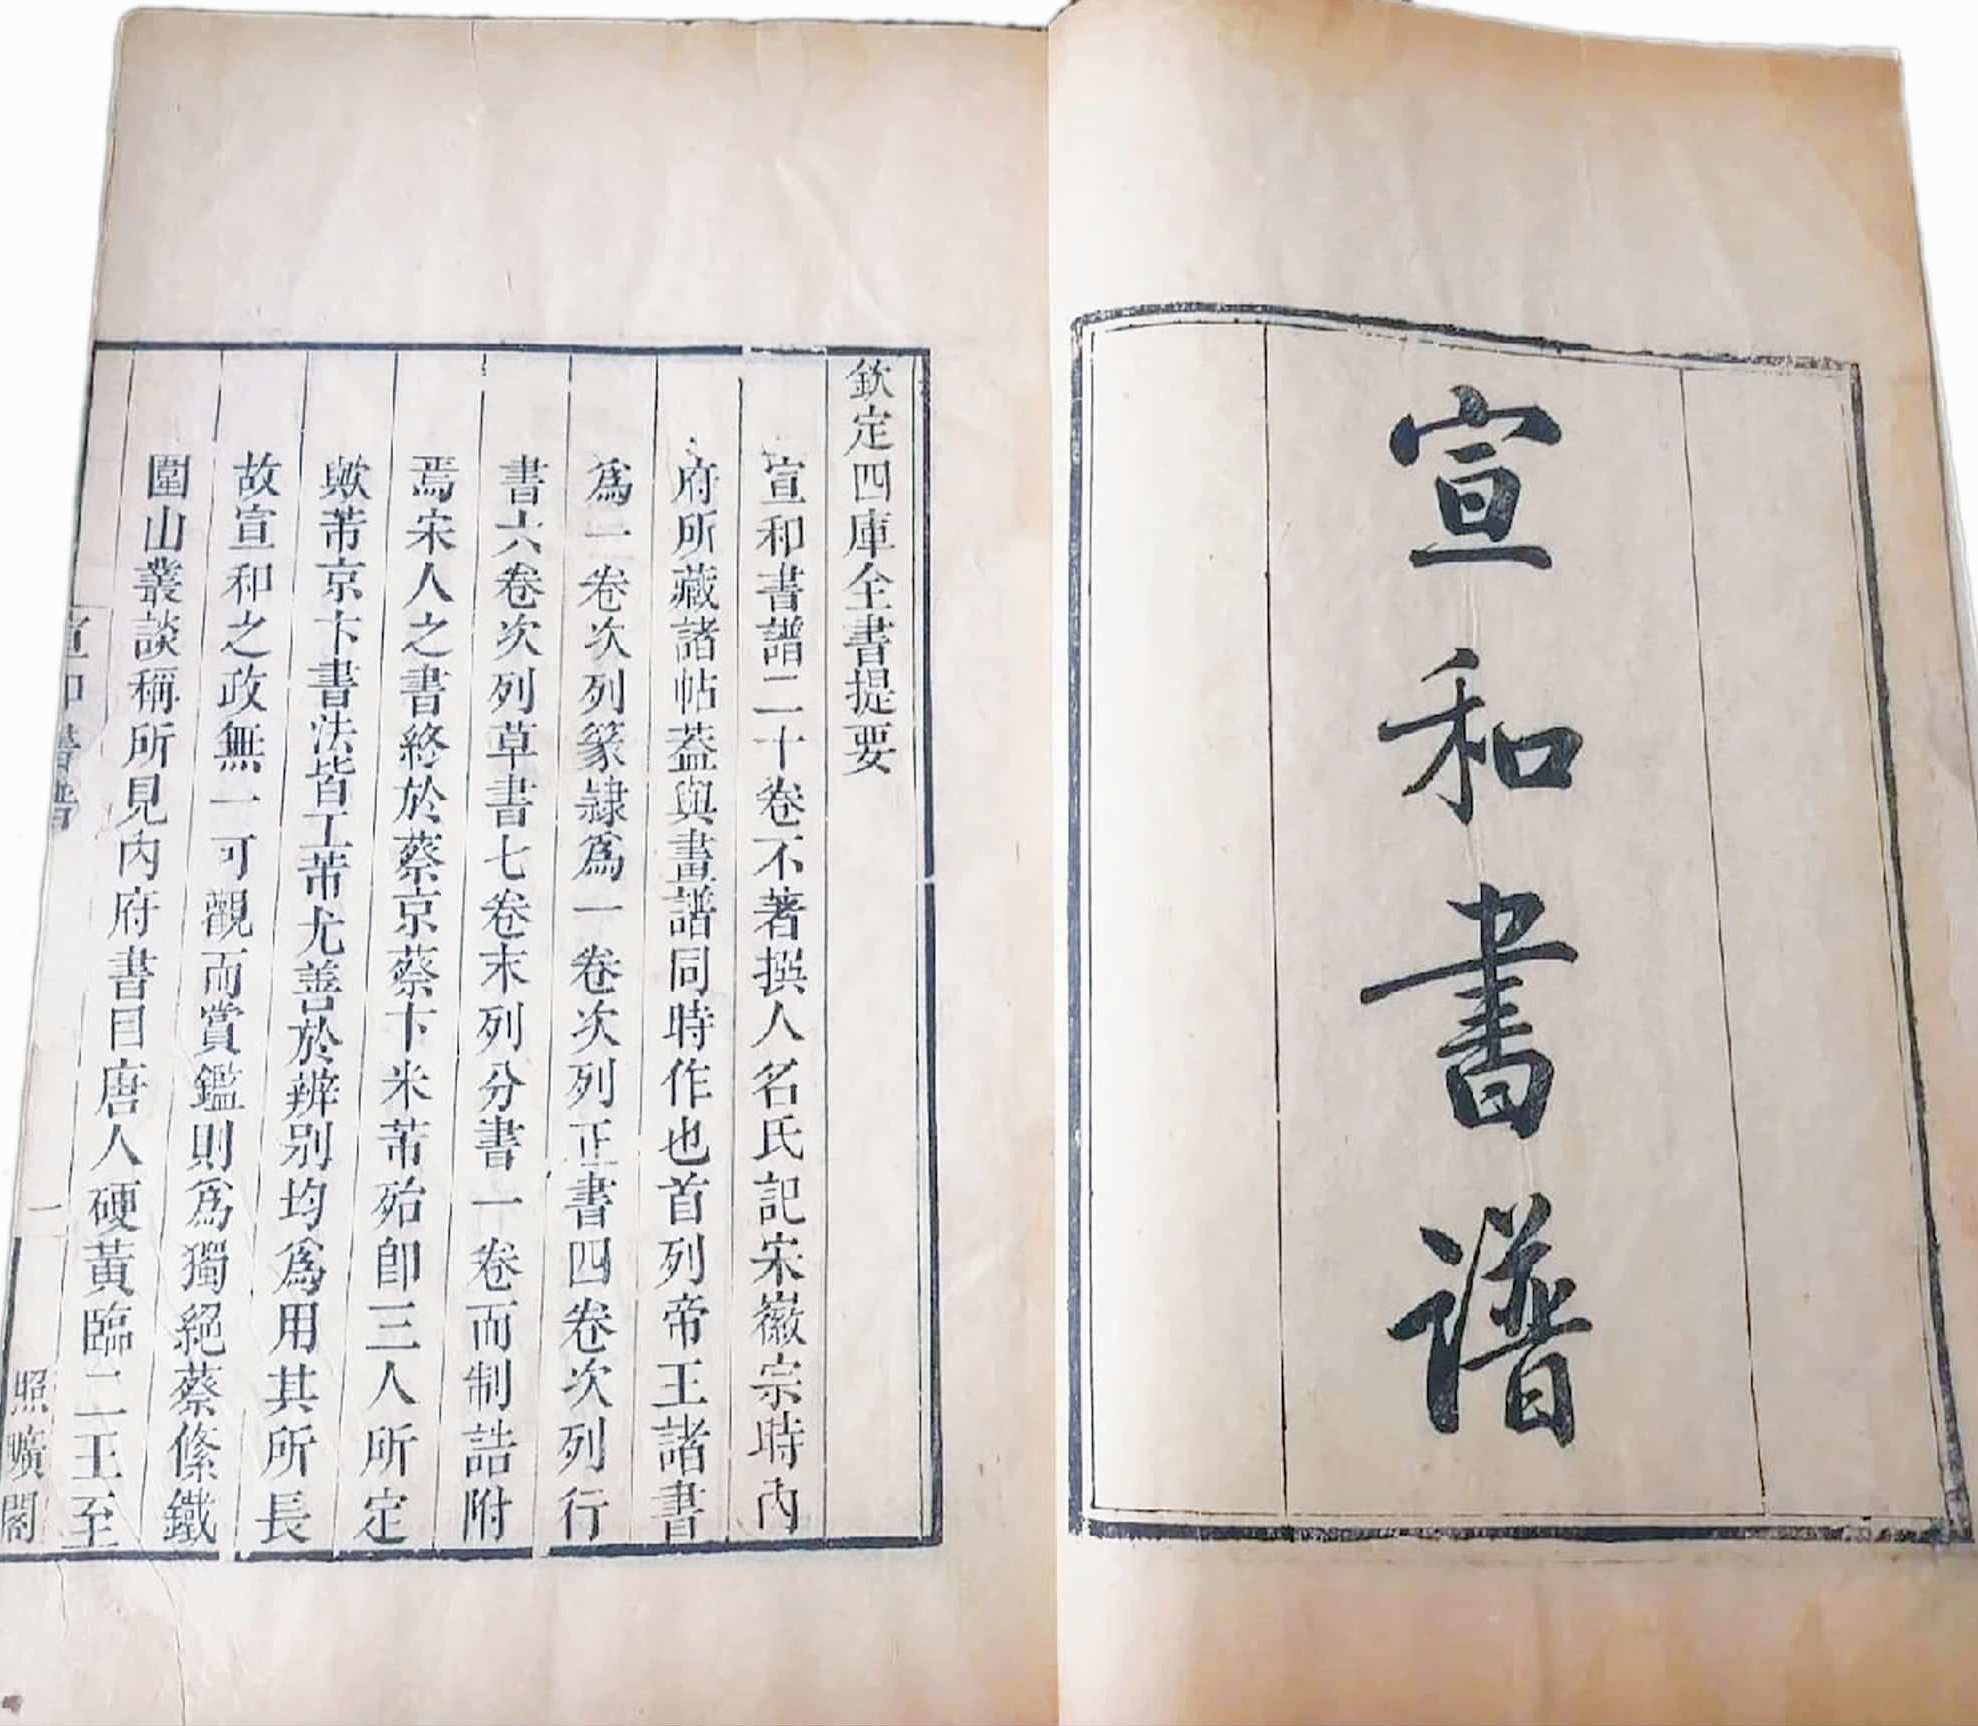 宣和書譜
欽定四庫全書提要
宣和書譜二十卷不著撰人名氏記宋徽宗時內
府所藏諸帖蓋與畫譜同時作也首列帝王諸書
爲一卷次列篆隷爲一卷次列正書四卷次列行
書六卷次列草書七卷末列分書一卷而制誥附
焉宋人之書終於蔡京蔡卞米芾殆卽三人所定
歟芾京卞書法皆工芾尤善於辨別均爲用其所長
故宣和之政無一可觀而賞鑑則爲獨絕蔡絛鐵
圍山叢談稱所見內府書目唐人硬黃臨二王至
宣和書譜
一
照曠閣